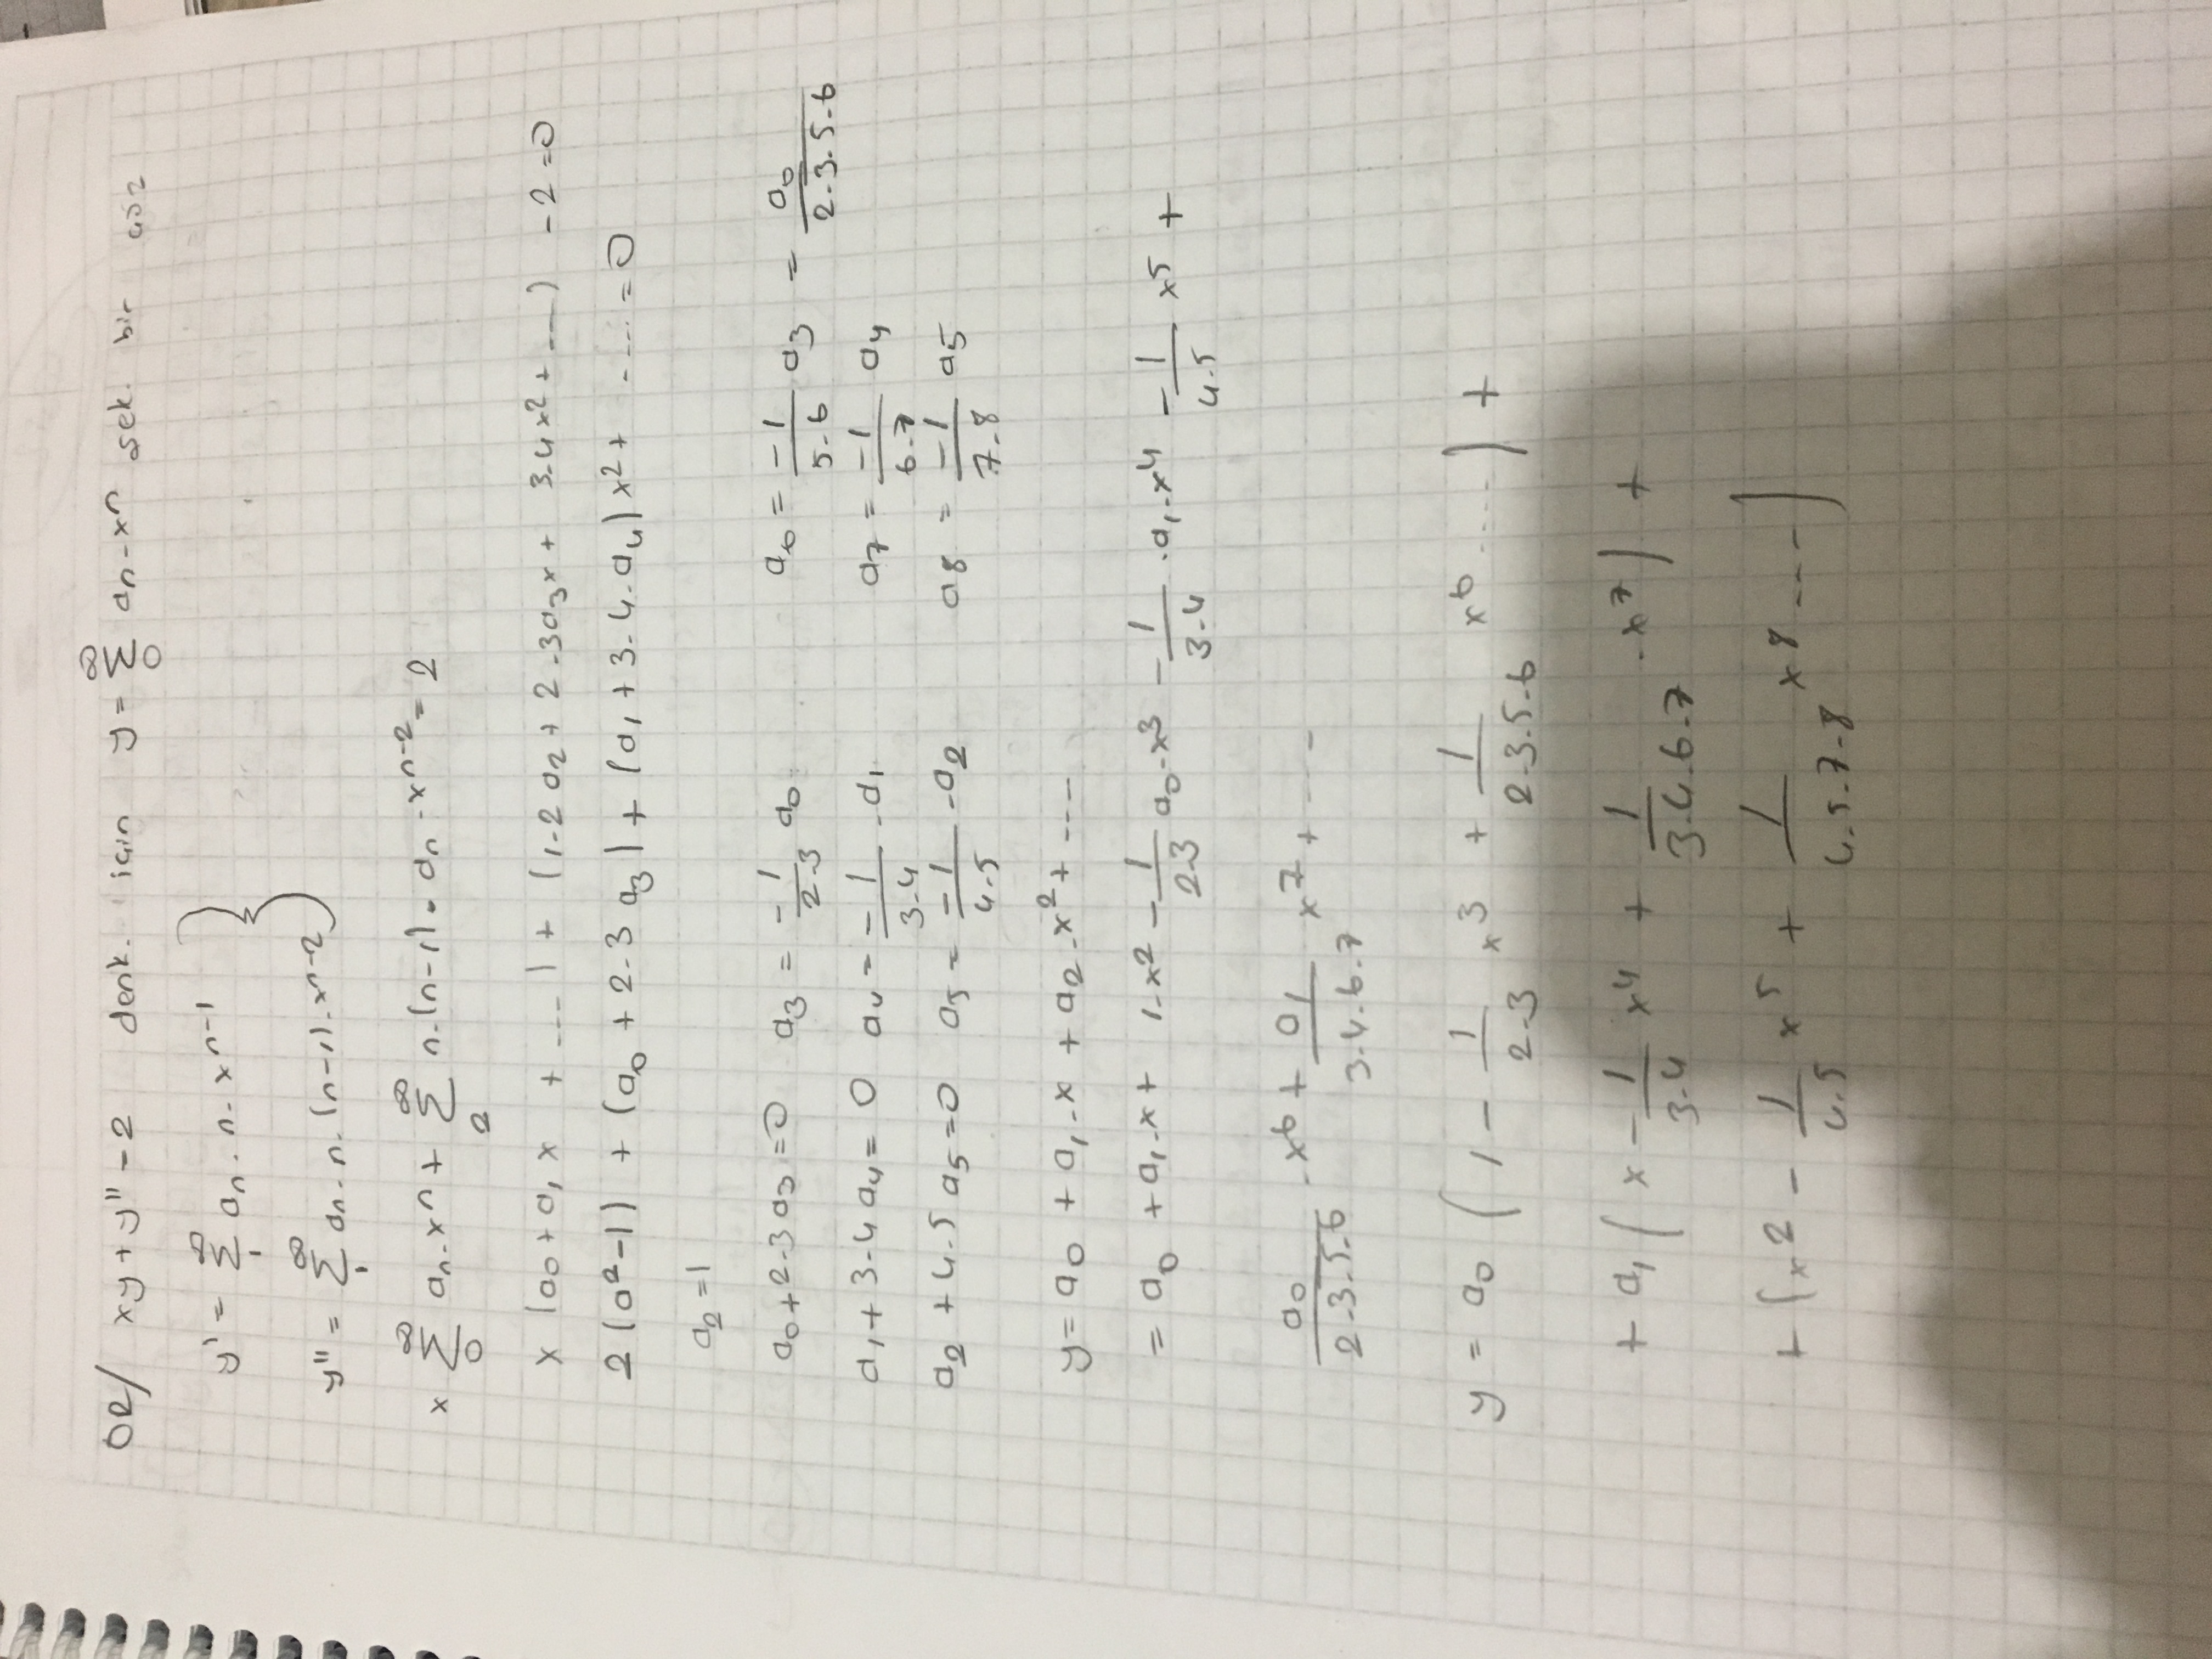 ÖR/ xy + y'' - 2 denk. için y = ∑_0^∞ an - x^n şek. bir çöz
y' = ∑_1^∞ an . n - x^n-1
y'' = ∑_1^∞ an - n. (n-1) . x^n-2
x ∑_0^∞ an - x^n + ∑_2^∞ n.(n-1) . an - x^n-2 = 2
x (a0 + a1 x + ....) + (1-2 a2 + 2-3a3x + 3-4x² + ....) - 2 = 0
2 (a²-1) + (a0 + 2-3 a3) + (a1 + 3-4.a4) x² + ..... = 0
a2 = 1
a0 + 2-3 a3 = 0 a3 = -1/2-3 a0 a6 = -1/5-6 a3 = a0/2-3.5-6
a1 + 3-4 a4 = 0 a4 = -1/3-4 - a1 a7 = -1/6-7 a4
a2 + 4.5 a5 = 0 a5 = -1/4.5 - a2 a8 = -1/7-8 a5
y = a0 + a1 - x + a2 - x² + ....
= a0 + a1 - x + 1 - x² - 1/2-3 a0 - x³ - 1/3-4 . a1 - x⁴ - 1/4.5 x⁵ +
a0/2-3-5-6 - x⁶ + a1/3-4.6-7 x⁷ + ....
y = a0 (1 - 1/2-3 x³ + 1/2-3.5-6 x⁶ ....) +
+ a1 (x - 1/3-4 x⁴ + 1/3-4.6-7 - x⁷) +
+ (x² - 1/4.5 x⁵ + 1/4.5.7-8 x⁸ ....)